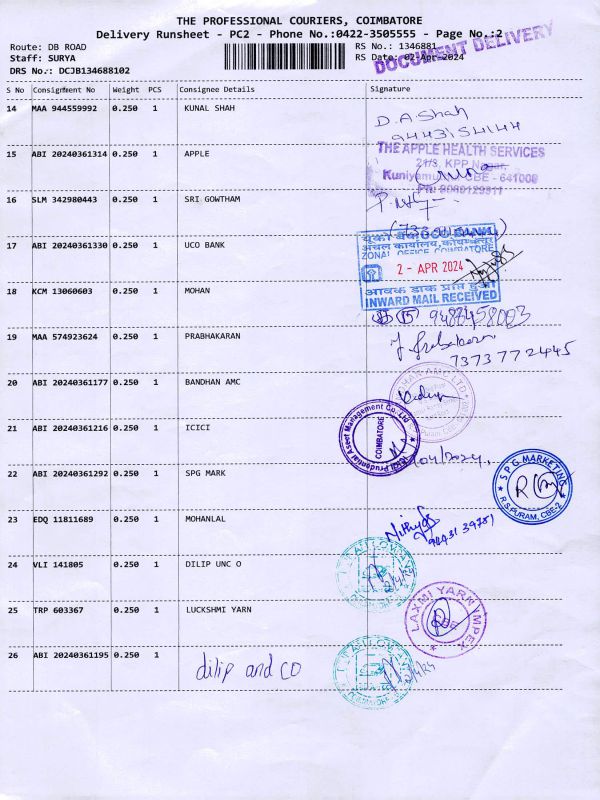 THE PROFESSIONAL COURIERS, COIMBATORE
Delivery Runsheet - PC2 - Phone No.:0422-3505555 - Page No.:2
Route: DB ROAD
RS No.: 1346881
Staff: SURYA
RS Date: 02-Apr-2024
DRS No.: DCJB134688102
DOCUMENT DELIVERY
S No Consignment No Weight PCS Consignee Details Signature
14 MAA 944559992 0.250 1 KUNAL SHAH
D.A.Shah
9443154144
15 ABI 20240361314 0.250 1 APPLE
THE APPLE HEALTH SERVICES
21/3, KPP Nagar,
Kuniyamuthur, CBE - 641008
16 SLM 342980443 0.250 1 SRI GOWTHAM
17 ABI 20240361330 0.250 1 UCO BANK
यूको बैंक UCO BANK
अंचल कार्यालय, कोयम्बत्तूर
ZONAL OFFICE COIMBATORE
2 - APR 2024
आवक डाक प्राप्त हुआ
INWARD MAIL RECEIVED
18 KCM 13060603 0.250 1 MOHAN
9487458003
19 MAA 574923624 0.250 1 PRABHAKARAN
7373772445
20 ABI 20240361177 0.250 1 BANDHAN AMC
21 ABI 20240361216 0.250 1 ICICI
Prudential Asset Management Co. Ltd
COIMBATORE
22 ABI 20240361292 0.250 1 SPG MARK
S.P.G. MARKETING
R.S.PURAM, CBE-2
23 EDQ 11811689 0.250 1 MOHANLAL
24 VLI 141805 0.250 1 DILIP UNC O
2/4/24
25 TRP 603367 0.250 1 LUCKSHMI YARN
LAXMI YARN IMPEX
CBE
26 ABI 20240361195 0.250 1
dilip and CO
2/4/24